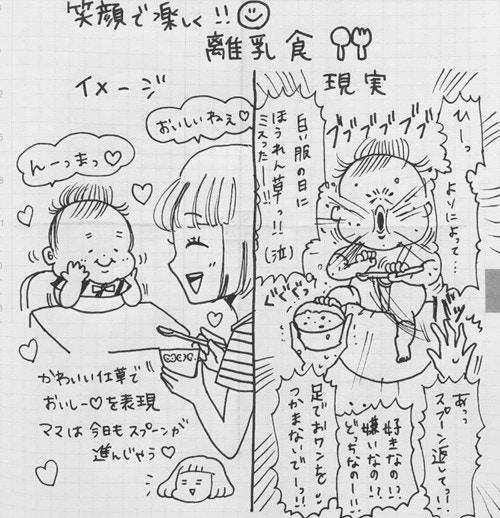 笑顔で楽しく!!
離乳食
イメージ
おいしいねぇ♡
んーっまっ♡
かわいい仕草で
おいしー♡を表現
ママは今日もスプーンが
進んじゃう♡
現実
ひーっ
よりによって…
ブブブブブブ
白い服の日に
ほうれん草っ!!
ミスったー!!
(泣)
ぐぐぐっ
あっっ
スプーン返してっ…!!
好きなの!?
嫌いなの!?
どっちなのー!!
足でおワンを
つかまないでーっ!!